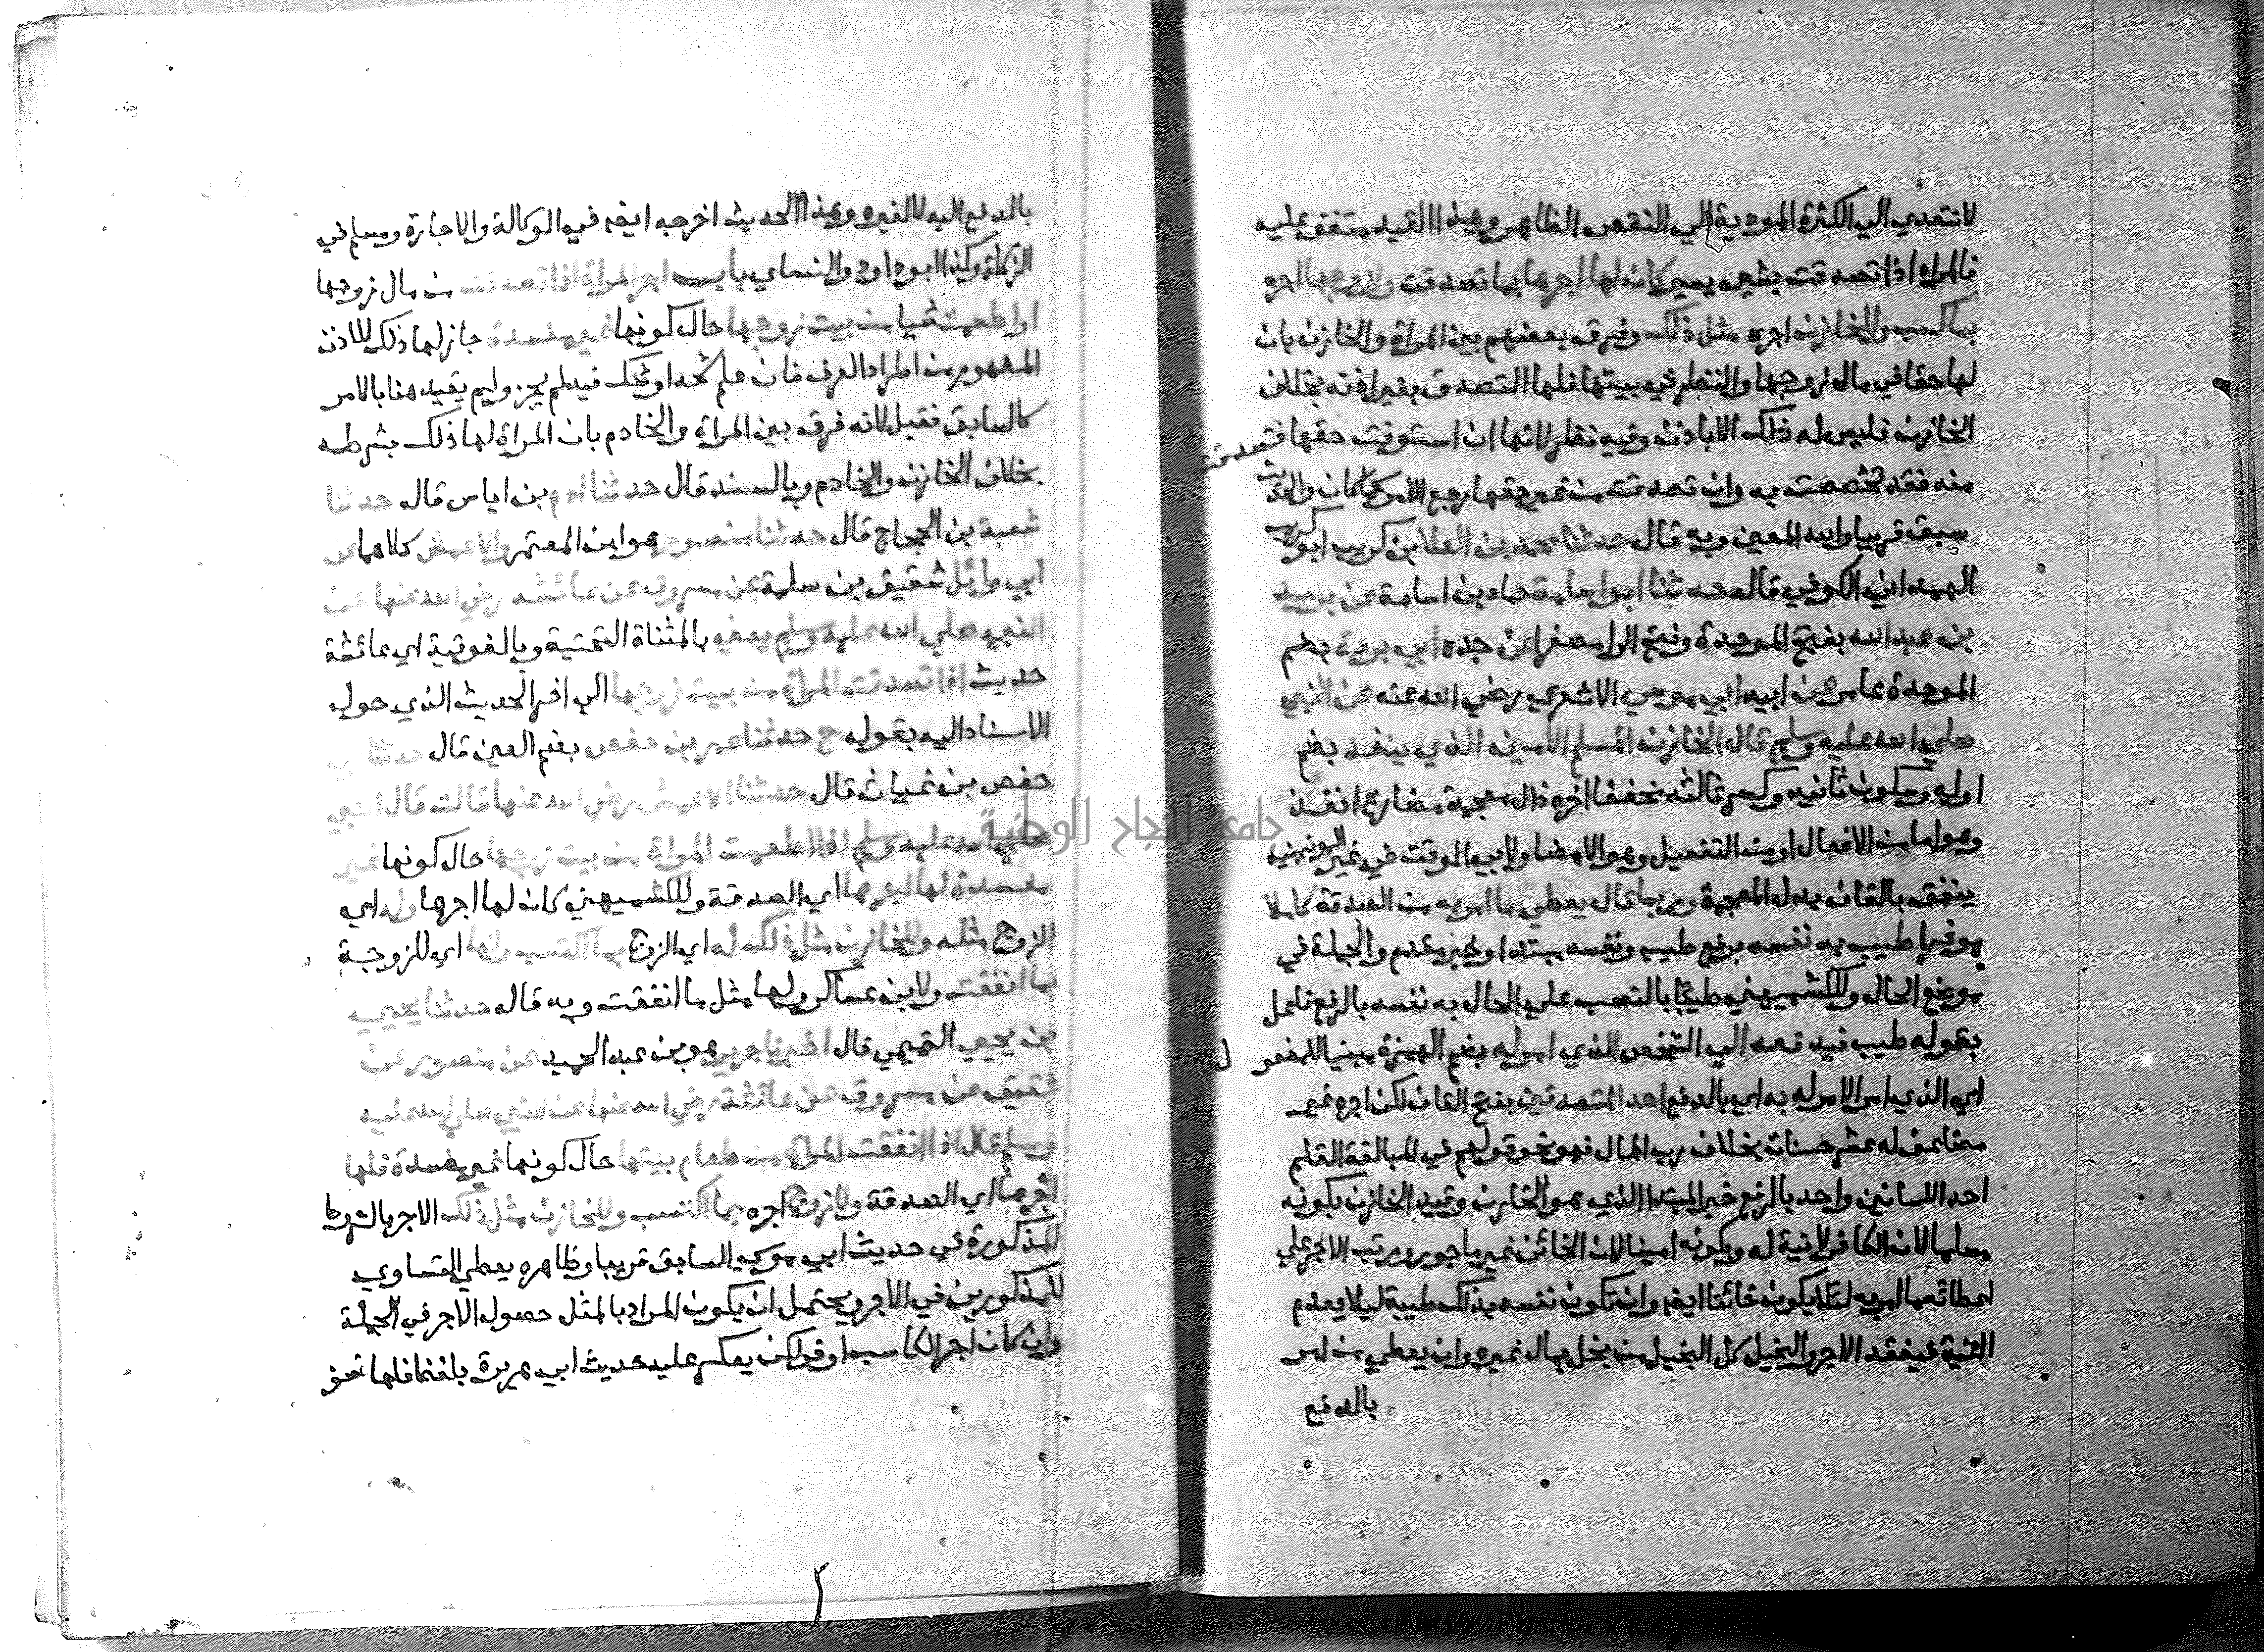 لا تتعدي الي الكثرة المودية الي النقص الظاهر وهذا القيد متفق عليه
فالمراة اذا تصدقت بشي يسير كان لها اجرها بما تصدقت ولزوجها اجره
بما كسب وللخازن اجره مثل ذلك وفرق بعضهم بين المراة والخازن بان
لها حقا في مال زوجها والنظر في بيتها فلها التصدق بغير اذنه بخلاف
الخازن فليس له ذلك الا باذن وفيه نظر لانها ان استوفت حقها فتصدقت
منه فقد تخصصت به وان تصدقت من غير حقها رجع الامر كما كان والحديث
سبق قريبا والله المعين وبه قال حدثنا محمد بن العلا بن كريب ابو كريب
الهمداني الكوفي قال حدثنا ابو اسامة حماد بن اسامة عن بريد
بن عبد الله بفتح الموحدة وفتح الرا مصغرا عن جده ابي بردة بضم
الموحدة عامر عن ابيه ابي موسي الاشعري رضي الله عنه عن النبي
صلي الله عليه وسلم قال الخازن المسلم الامين الذي ينفذ بضم
اوله وسكون ثانيه وكسر ثالثه مخففا اخره ذال معجمة مضارع انفذ
وهو اما من الافعال او من التفعيل وهو الامضا ولابي الوقت في غير اليونينية
ينفق بالقاف بدل المعجمة وربما قال يعطي ما امر به من الصدقة كاملا
موفرا طيب به نفسه برفع طيب ونفسه مبتدا وخبر مقدم والجملة في
موضع الحال وللكشميهني طيبا بالنصب علي الحال به نفسه بالرفع فاعل
بقوله طيب فيدفعه الي الشخص الذي امر له بضم الهمزة مبنيا للمفعول
اي الذي امر الامر له به اي بالدفع احد المتصدقين بفتح القاف لكن اجره غير
مضاعف له عشر حسنات بخلاف رب المال فهو نحو قولهم في المبالغة القلم
احد اللسانين واحد بالرفع خبر المبتدا الذي هو الخازن وقيد الخازن بكونه
مسلما لان الكافر لا نية له وبكونه امينا لان الخائن غير ماجور ورتب الاجر علي
اعطائه ما امر به لئلا يكون خائنا ايضا وان تكون نفسه بذلك طيبة ليلا يعدم
النية فيفقد الاجر والبخيل كل البخيل من بخل بمال غيره وان يعطي من امر
بالدفع
بالدفع اليه لا لغيره وهذا الحديث اخرجه ايضا في الوكالة والاجارة ومسلم في
الزكاة وكذا ابو داود والنساي باب اجر المراة اذا تصدقت من مال زوجها
او اطعمت شيا من بيت زوجها حال كونها غير مفسدة جاز لها ذلك للاذن
المفهوم من اطراد العرف فان علم شحه او شك فيه لم يجز ولم يقيد هنا بالامر
كالسابق فقيل لانه فرق بين المراة والخادم بان المراة لها ذلك بشرطه
بخلاف الخازن والخادم وبالسند قال حدثنا ادم بن اياس قال حدثنا
شعبة بن الحجاج قال حدثنا منصور هو ابن المعتمر والاعمش كلاهما عن
ابي وائل شقيق بن سلمة عن مسروق عن عائشة رضي الله عنها عن
النبي صلي الله عليه وسلم يعني بالمثناة التحتية وبالفوقية اي عائشة
حديث اذا تصدقت المراة من بيت زوجها الي اخر الحديث الذي حول
الاسناد اليه بقوله ح حدثنا عمر بن حفص بضم العين قال حدثنا
حفص بن غياث قال حدثنا الاعمش رضي الله عنها قالت قال النبي
صلي الله عليه وسلم اذا اطعمت المراة من بيت زوجها حال كونها غير
مفسدة لها اجرها اي الصدقة وللكشميهني كان لها اجرها وله اي
الزوج مثله وللخازن مثل ذلك له اي الزوج بما اكتسب ولها اي للزوجة
بما انفقت ولابن عساكر ولها مثل ما انفقت وبه قال حدثنا يحيي
بن يحيي التميمي قال اخبرنا جرير هو بن عبد الحميد عن منصور عن
شقيق عن مسروق عن عائشة رضي الله عنها عن النبي صلي الله عليه
وسلم قال اذا انفقت المراة من طعام بيتها حال كونها غير مفسدة فلها
اجرها اي الصدقة وللزوج اجره بما اكتسب وللخازن مثل ذلك الاجر بالشروط
المذكورة في حديث ابي موسي السابق قريبا وظاهره يعطي التساوي
للمذكورين في الاجر ويحتمل ان يكون المراد بالمثل حصول الاجر في الجملة
وان كان اجر الكاسب اوفر لكن يعكر عليه حديث ابي هريرة بلفظ فلها نصف
جامعة النجاح الوطنية